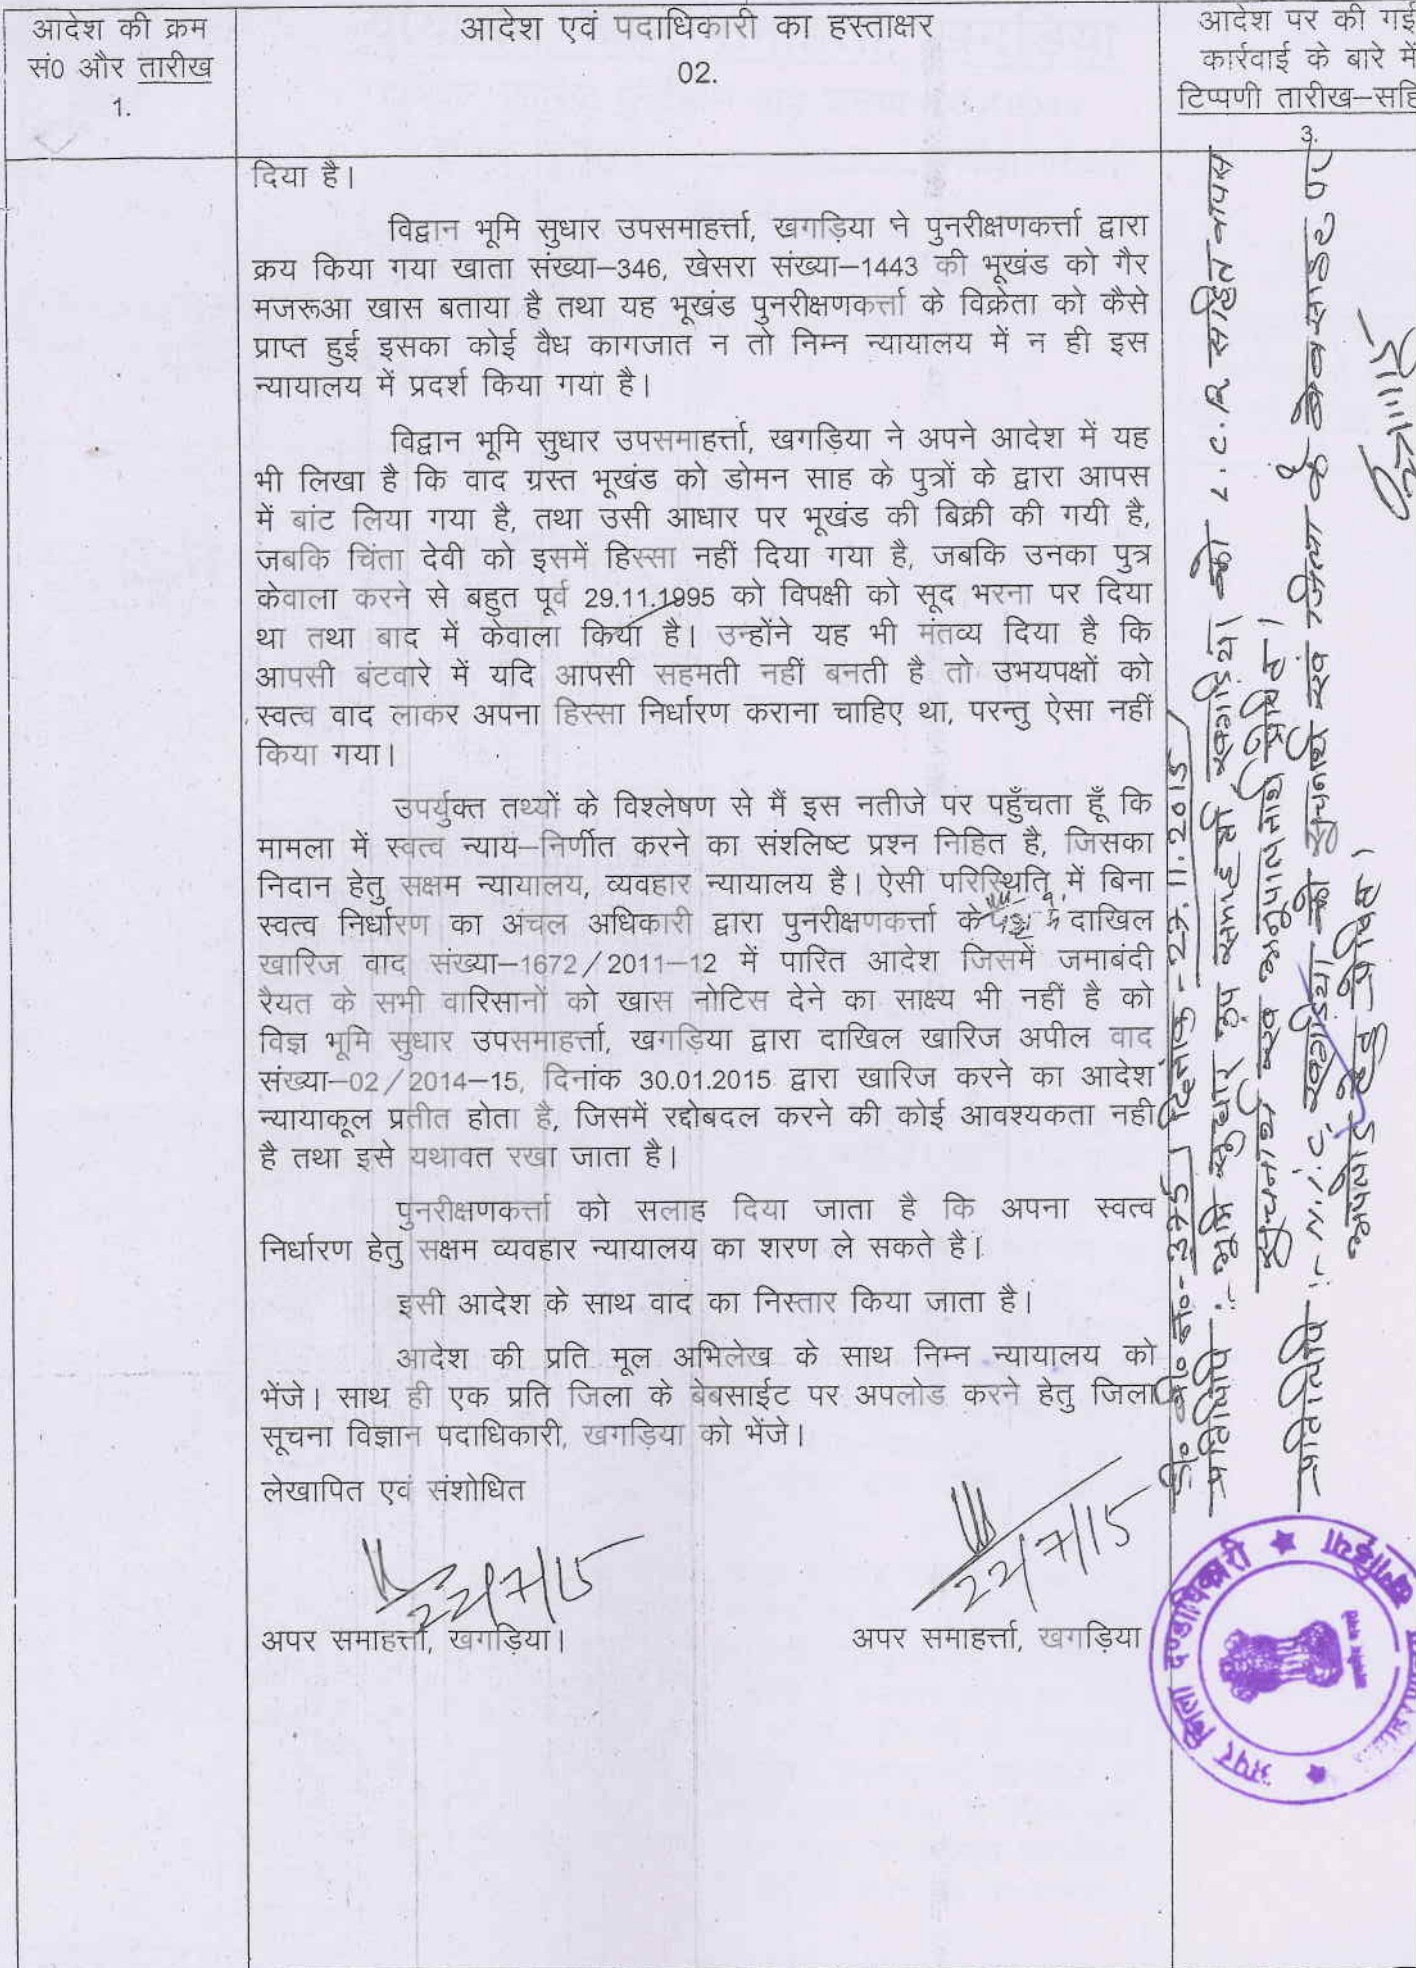 आदेश की क्रम
सं0 और तारीख
1.
आदेश एवं पदाधिकारी का हस्ताक्षर
02.
आदेश पर की गई
कार्रवाई के बारे में
टिप्पणी तारीख–सहि
3.
दिया है।
विद्वान भूमि सुधार उपसमाहर्त्ता, खगड़िया ने पुनरीक्षणकर्त्ता द्वारा
क्रय किया गया खाता संख्या–346, खेसरा संख्या–1443 की भूखंड को गैर
मजरूआ खास बताया है तथा यह भूखंड पुनरीक्षणकर्त्ता के विक्रेता को कैसे
प्राप्त हुई इसका कोई वैध कागजात न तो निम्न न्यायालय में न ही इस
न्यायालय में प्रदर्श किया गया है।
विद्वान भूमि सुधार उपसमाहर्त्ता, खगड़िया ने अपने आदेश में यह
भी लिखा है कि वाद ग्रस्त भूखंड को डोमन साह के पुत्रों के द्वारा आपस
में बांट लिया गया है, तथा उसी आधार पर भूखंड की बिक्री की गयी है,
जबकि चिंता देवी को इसमें हिस्सा नहीं दिया गया है, जबकि उनका पुत्र
केवाला करने से बहुत पूर्व 29.11.1995 को विपक्षी को सूद भरना पर दिया
था तथा बाद में केवाला किया है। उन्होंने यह भी मंतव्य दिया है कि
आपसी बंटवारे में यदि आपसी सहमती नहीं बनती है तो उभयपक्षों को
स्वत्व वाद लाकर अपना हिस्सा निर्धारण कराना चाहिए था, परन्तु ऐसा नहीं
किया गया।
उपर्युक्त तथ्यों के विश्लेषण से मैं इस नतीजे पर पहुँचता हूँ कि
मामला में स्वत्व न्याय–निर्णीत करने का संश्लिष्ट प्रश्न निहित है, जिसका
निदान हेतु सक्षम न्यायालय, व्यवहार न्यायालय है। ऐसी परिस्थिति में बिना
स्वत्व निर्धारण का अंचल अधिकारी द्वारा पुनरीक्षणकर्त्ता के पक्ष में दाखिल
खारिज वाद संख्या–1672/2011–12 में पारित आदेश जिसमें जमाबंदी
रैयत के सभी वारिसानों को खास नोटिस देने का साक्ष्य भी नहीं है को
विज्ञ भूमि सुधार उपसमाहर्त्ता, खगड़िया द्वारा दाखिल खारिज अपील वाद
संख्या–02/2014–15, दिनांक 30.01.2015 द्वारा खारिज करने का आदेश
न्यायाकूल प्रतीत होता है, जिसमें रद्दोबदल करने की कोई आवश्यकता नही
है तथा इसे यथावत रखा जाता है।
पुनरीक्षणकर्त्ता को सलाह दिया जाता है कि अपना स्वत्व
निर्धारण हेतु सक्षम व्यवहार न्यायालय का शरण ले सकते है।
इसी आदेश के साथ वाद का निस्तार किया जाता है।
आदेश की प्रति मूल अभिलेख के साथ निम्न न्यायालय को
भेंजे। साथ ही एक प्रति जिला के बेबसाईट पर अपलोड करने हेतु जिला
सूचना विज्ञान पदाधिकारी, खगड़िया को भेंजे।
लेखापित एवं संशोधित
22/7/15
22/7/15
अपर समाहर्त्ता, खगड़िया।
अपर समाहर्त्ता, खगड़िया
दिनांक - 27.11.2015
प्रतिलिपि :- भूमि सुधार उप समाहर्त्ता, खगड़िया को L.C.R सहित वापस
सूचनार्थ एवं अनुपालनार्थ प्रेषित।
प्रतिलिपि :- N.I.C, खगड़िया को सूचनार्थ एवं जिला के वेबसाइट पर
अपलोड हेतु प्रेषित।
अपर जिला दण्डाधिकारी ★ खगड़िया ★